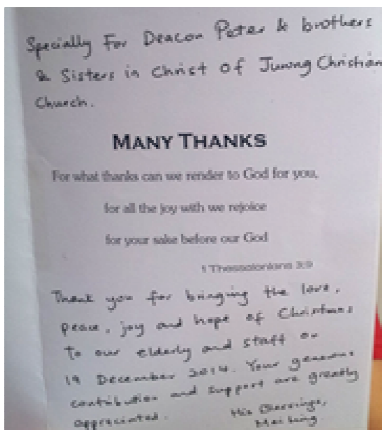 Specially For Deacon Peter & brothers
& Sisters in Christ of Jurong Christian
Church.
MANY THANKS
For what thanks can we render to God for you,
for all the joy with we rejoice
for your sake before our God
1 Thessalonians 3:9
Thank you for bringing the love,
peace, joy and hope of Christmas
to our elderly and staff on
19 December 2014. Your generous
contribution and support are greatly
appreciated.
His Blessings,
Mei Ling